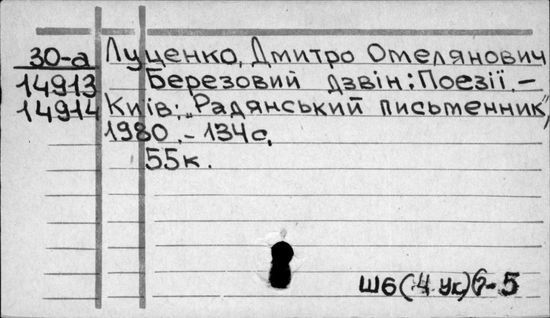 30-а Луценко, Дмитро Омелянович
14913 Березовий дзвін: Поезії. –
14914 Київ: „Радянський письменник",
1980. – 134с.
55к.
Ш6(4 Ук)6-5